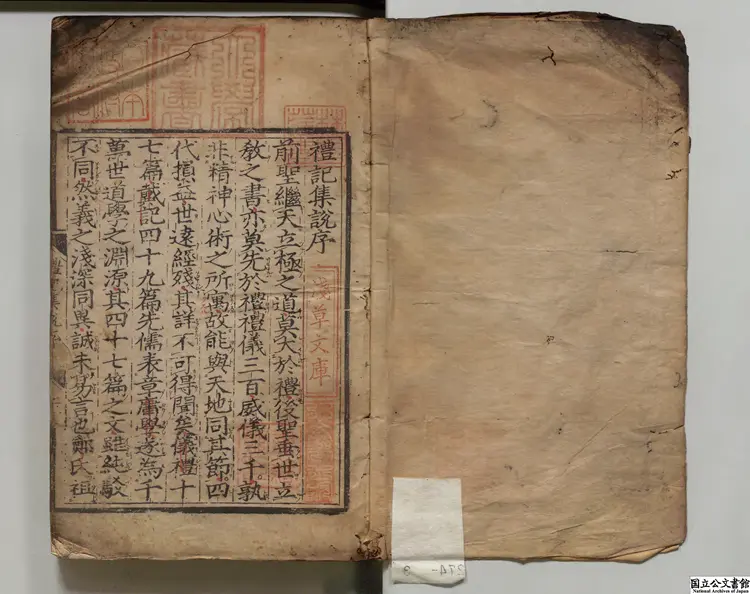 禮記集說序
前聖繼天立極之道莫大於禮後聖垂世立
敎之書亦莫先於禮禮儀三百威儀三千孰
非精神心術之所寓故能與天地同其節四
代損益世逺經殘其詳不可得聞矣儀禮十
七篇戴記四十九篇先儒表章庸學遂為千
萬世道學之淵源其四十七篇之文雖純駁
不同然義之淺深同異誠未易言也鄭氏祖
淺草文庫
国立公文書館
National Archives of Japan